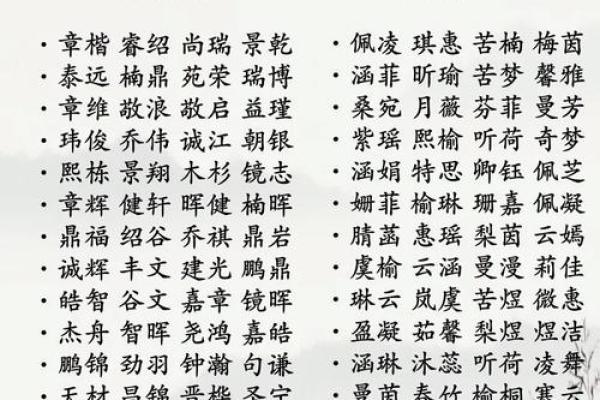 ·章楷 睿绍 尚瑞 景乾
·泰远 楠鼎 苑荣 瑞博
·章维 敬浪 敬启 益瑾
·玮俊 乔伟 诚江 朝银
·熙栋 景翔 木杉 镜志
·章辉 健轩 晖健 楠晖
·鼎福 绍谷 乔祺 鼎岩
·诚辉 丰文 建光 鹏鼎
·皓智 谷文 嘉章 镜晖
·杰舟 智晖 尧鸿 嘉皓
·鹏锦 劲羽 钟瀚 句谦
·天材 昌锦 晋桦 圣宁
·佩凌 琪惠 苦楠 梅茵
·涵菲 昕瑜 苦梦 馨雅
·桑宛 月薇 芬菲 曼芳
·紫瑶 熙榆 听荷 奇梦
·涵娟 特思 卿钰 佩芝
·姗菲 榆琳 珊嘉 佩凝
·腈菡 惠瑶 梨茵 云嫣
·虞榆 云涵 曼漫 莉佳
·琳云 岚虞 苦煜 微惠
·盈凝 茹馨 梨煜 煜洁
·涵琳 沐蕊 听荷 凌舞
·曼茵 春竹 榆桐 寒云